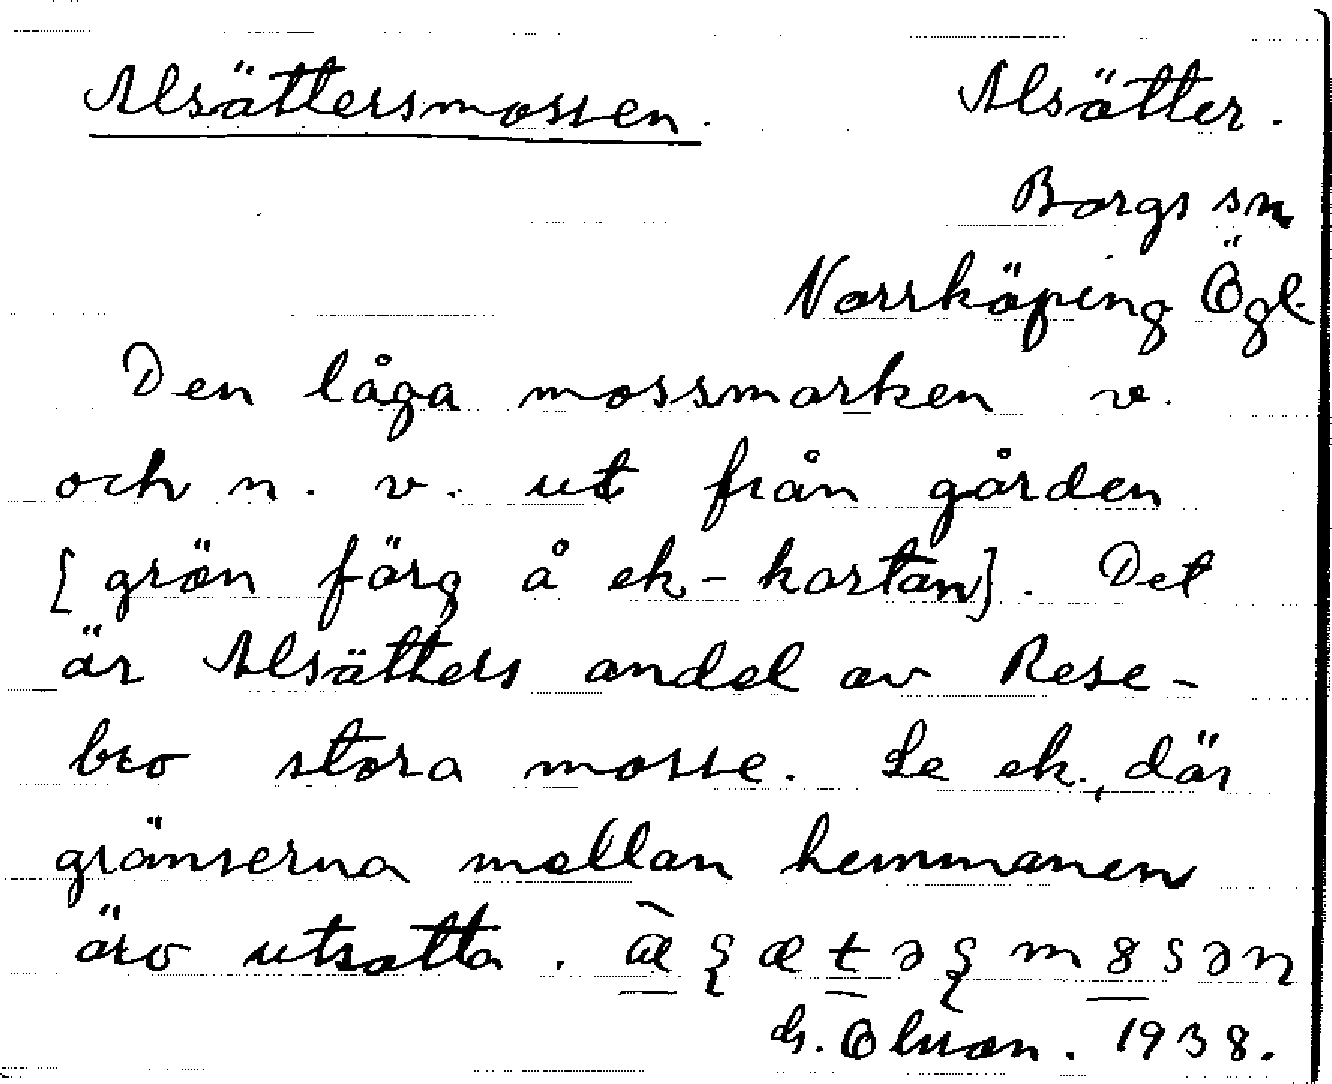 Alsättersmossen. Alsätter.
Borgs sn
Norrköping Ögl.
Den låga mossmarken v.
och n. v. ut från gården
[grön färg å ek-kartan]. Det
är Alsätters andel av Rese-
bro stora mosse. Se ek., där
gränserna mellan hemmanen
äro utsatta.
G. Olsson. 1938.